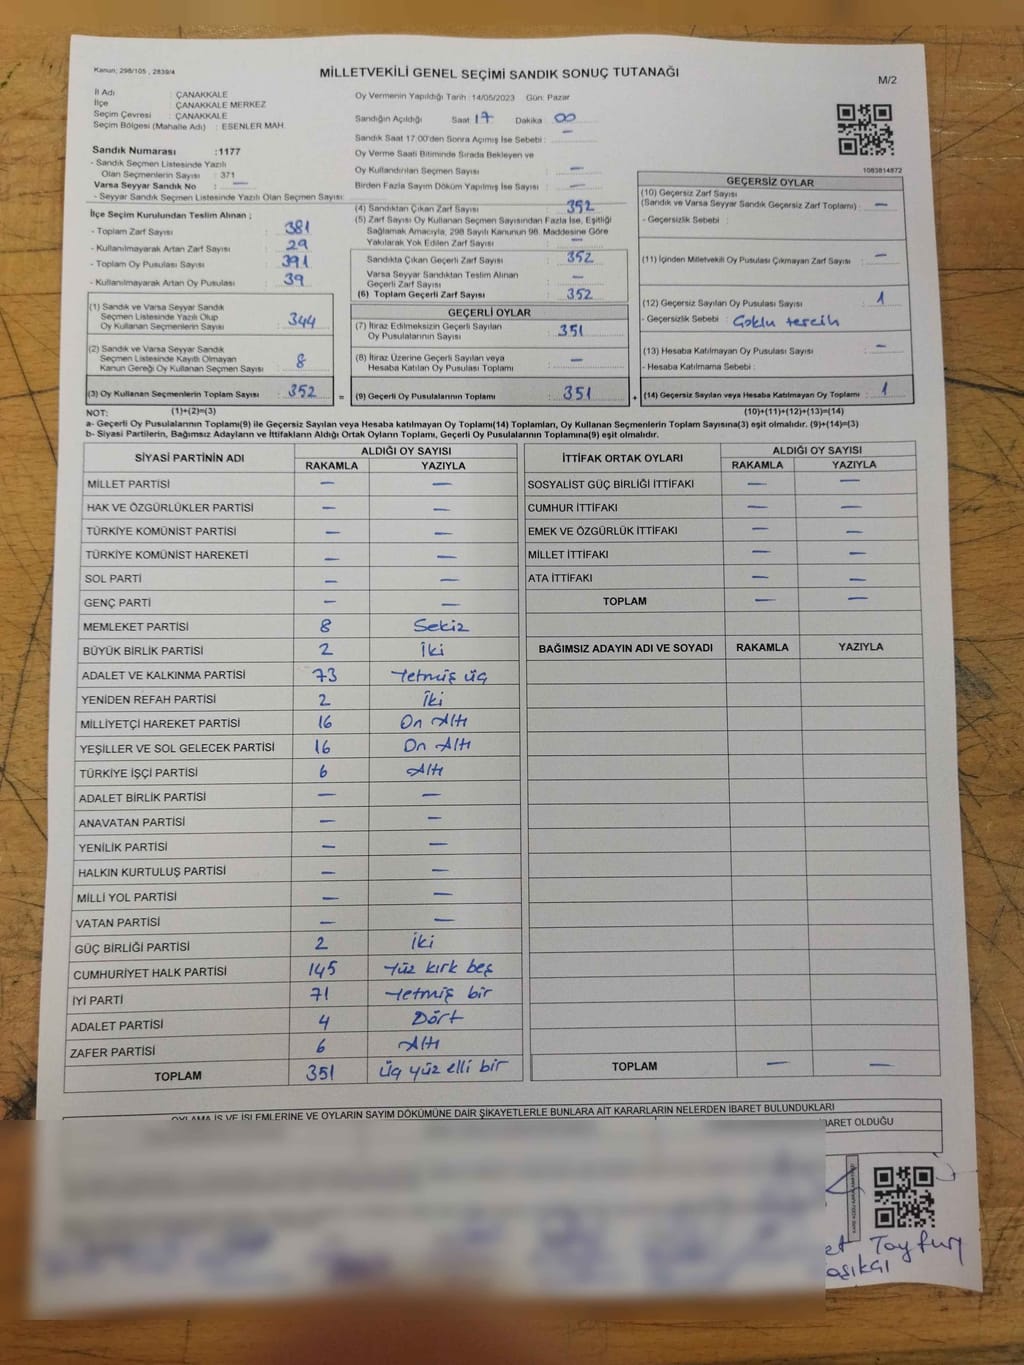 Kanun; 298/105 , 2839/4
MİLLETVEKİLİ GENEL SEÇİMİ SANDIK SONUÇ TUTANAĞI
M/2
İl Adı : ÇANAKKALE
İlçe : ÇANAKKALE MERKEZ
Seçim Çevresi : ÇANAKKALE
Seçim Bölgesi (Mahalle Adı) : ESENLER MAH.
Sandık Numarası :1177
- Sandık Seçmen Listesinde Yazılı
Olan Seçmenlerin Sayısı : 371
Varsa Seyyar Sandık No —
- Seyyar Sandık Seçmen Listesinde Yazılı Olan Seçmen Sayısı:
İlçe Seçim Kurulundan Teslim Alınan ;
- Toplam Zarf Sayısı : 381
- Kullanılmayarak Artan Zarf Sayısı : 29
- Toplam Oy Pusulası Sayısı : 391
- Kullanılmayarak Artan Oy Pusulası : 39
(1) Sandık ve Varsa Seyyar Sandık
Seçmen Listesinde Yazılı Olup
Oy Kullanan Seçmenlerin Sayısı : 344
(2) Sandık ve Varsa Seyyar Sandık
Seçmen Listesinde Kayıtlı Olmayan
Kanun Gereği Oy Kullanan Seçmen Sayısı : 8
(3) Oy Kullanan Seçmenlerin Toplam Sayısı : 352 =
Oy Vermenin Yapıldığı Tarih :14/05/2023 Gün: Pazar
Sandığın Açıldığı Saat 17 Dakika 00
Sandık Saat 17:00'den Sonra Açımış İse Sebebi : —
Oy Verme Saati Bitiminde Sırada Bekleyen ve
Oy Kullandırılan Seçmen Sayısı : —
Birden Fazla Sayım Döküm Yapılmış İse Sayısı : —
(4) Sandıktan Çıkan Zarf Sayısı : 352
(5) Zarf Sayısı Oy Kullanan Seçmen Sayısından Fazla İse, Eşitliği
Sağlamak Amacıyla, 298 Sayılı Kanunun 98. Maddesine Göre
Yakılarak Yok Edilen Zarf Sayısı : —
Sandıkta Çıkan Geçerli Zarf Sayısı : 352
Varsa Seyyar Sandıktan Teslim Alınan
Geçerli Zarf Sayısı : —
(6) Toplam Geçerli Zarf Sayısı : 352
GEÇERLİ OYLAR
(7) İtiraz Edilmeksizin Geçerli Sayılan
Oy Pusulalarının Sayısı : 351
(8) İtiraz Üzerine Geçerli Sayılan veya
Hesaba Katılan Oy Pusulası Toplamı : —
(9) Geçerli Oy Pusulalarının Toplamı : 351 +
1083814872
GEÇERSİZ OYLAR
(10) Geçersiz Zarf Sayısı
(Sandık ve Varsa Seyyar Sandık Geçersiz Zarf Toplamı) : —
- Geçersizlik Sebebi :
(11) İçinden Milletvekili Oy Pusulası Çıkmayan Zarf Sayısı : —
(12) Geçersiz Sayılan Oy Pusulası Sayısı : 1
- Geçersizlik Sebebi : Çoklu tercih
(13) Hesaba Katılmayan Oy Pusulası Sayısı : —
- Hesaba Katılmama Sebebi :
(14) Geçersiz Sayılan veya Hesaba Katılmayan Oy Toplamı : 1
NOT: (1)+(2)=(3) (10)+(11)+(12)+(13)=(14)
a- Geçerli Oy Pusulalarının Toplamı(9) ile Geçersiz Sayılan veya Hesaba katılmayan Oy Toplamı(14) Toplamları, Oy Kullanan Seçmenlerin Toplam Sayısına(3) eşit olmalıdır. (9)+(14)=(3)
b- Siyasi Partilerin, Bağımsız Adayların ve İttifakların Aldığı Ortak Oyların Toplamı, Geçerli Oy Pusulalarının Toplamına(9) eşit olmalıdır.
SİYASİ PARTİNİN ADI ALDIĞI OY SAYISI
RAKAMLA YAZIYLA
MİLLET PARTİSİ — —
HAK VE ÖZGÜRLÜKLER PARTİSİ — —
TÜRKİYE KOMÜNİST PARTİSİ — —
TÜRKİYE KOMÜNİST HAREKETİ — —
SOL PARTİ — —
GENÇ PARTİ — —
MEMLEKET PARTİSİ 8 Sekiz
BÜYÜK BİRLİK PARTİSİ 2 İki
ADALET VE KALKINMA PARTİSİ 73 Yetmiş üç
YENİDEN REFAH PARTİSİ 2 İki
MİLLİYETÇİ HAREKET PARTİSİ 16 On Altı
YEŞİLLER VE SOL GELECEK PARTİSİ 16 On Altı
TÜRKİYE İŞÇİ PARTİSİ 6 Altı
ADALET BİRLİK PARTİSİ — —
ANAVATAN PARTİSİ — —
YENİLİK PARTİSİ — —
HALKIN KURTULUŞ PARTİSİ — —
MİLLİ YOL PARTİSİ — —
VATAN PARTİSİ — —
GÜÇ BİRLİĞİ PARTİSİ 2 İki
CUMHURİYET HALK PARTİSİ 145 Yüz kırk beş
İYİ PARTİ 71 Yetmiş bir
ADALET PARTİSİ 4 Dört
ZAFER PARTİSİ 6 Altı
TOPLAM 351 Üç yüz elli bir
İTTİFAK ORTAK OYLARI ALDIĞI OY SAYISI
RAKAMLA YAZIYLA
SOSYALİST GÜÇ BİRLİĞİ İTTİFAKI — —
CUMHUR İTTİFAKI — —
EMEK VE ÖZGÜRLÜK İTTİFAKI — —
MİLLET İTTİFAKI — —
ATA İTTİFAKI — —
TOPLAM — —
BAĞIMSIZ ADAYIN ADI VE SOYADI RAKAMLA YAZIYLA
TOPLAM — —
OYLAMA İŞ VE İŞLEMLERİNE VE OYLARIN SAYIM DÖKÜMÜNE DAİR ŞİKAYETLERLE BUNLARA AİT KARARLARIN NELERDEN İBARET BULUNDUKLARI
BARET OLDUĞU
et Tayfun